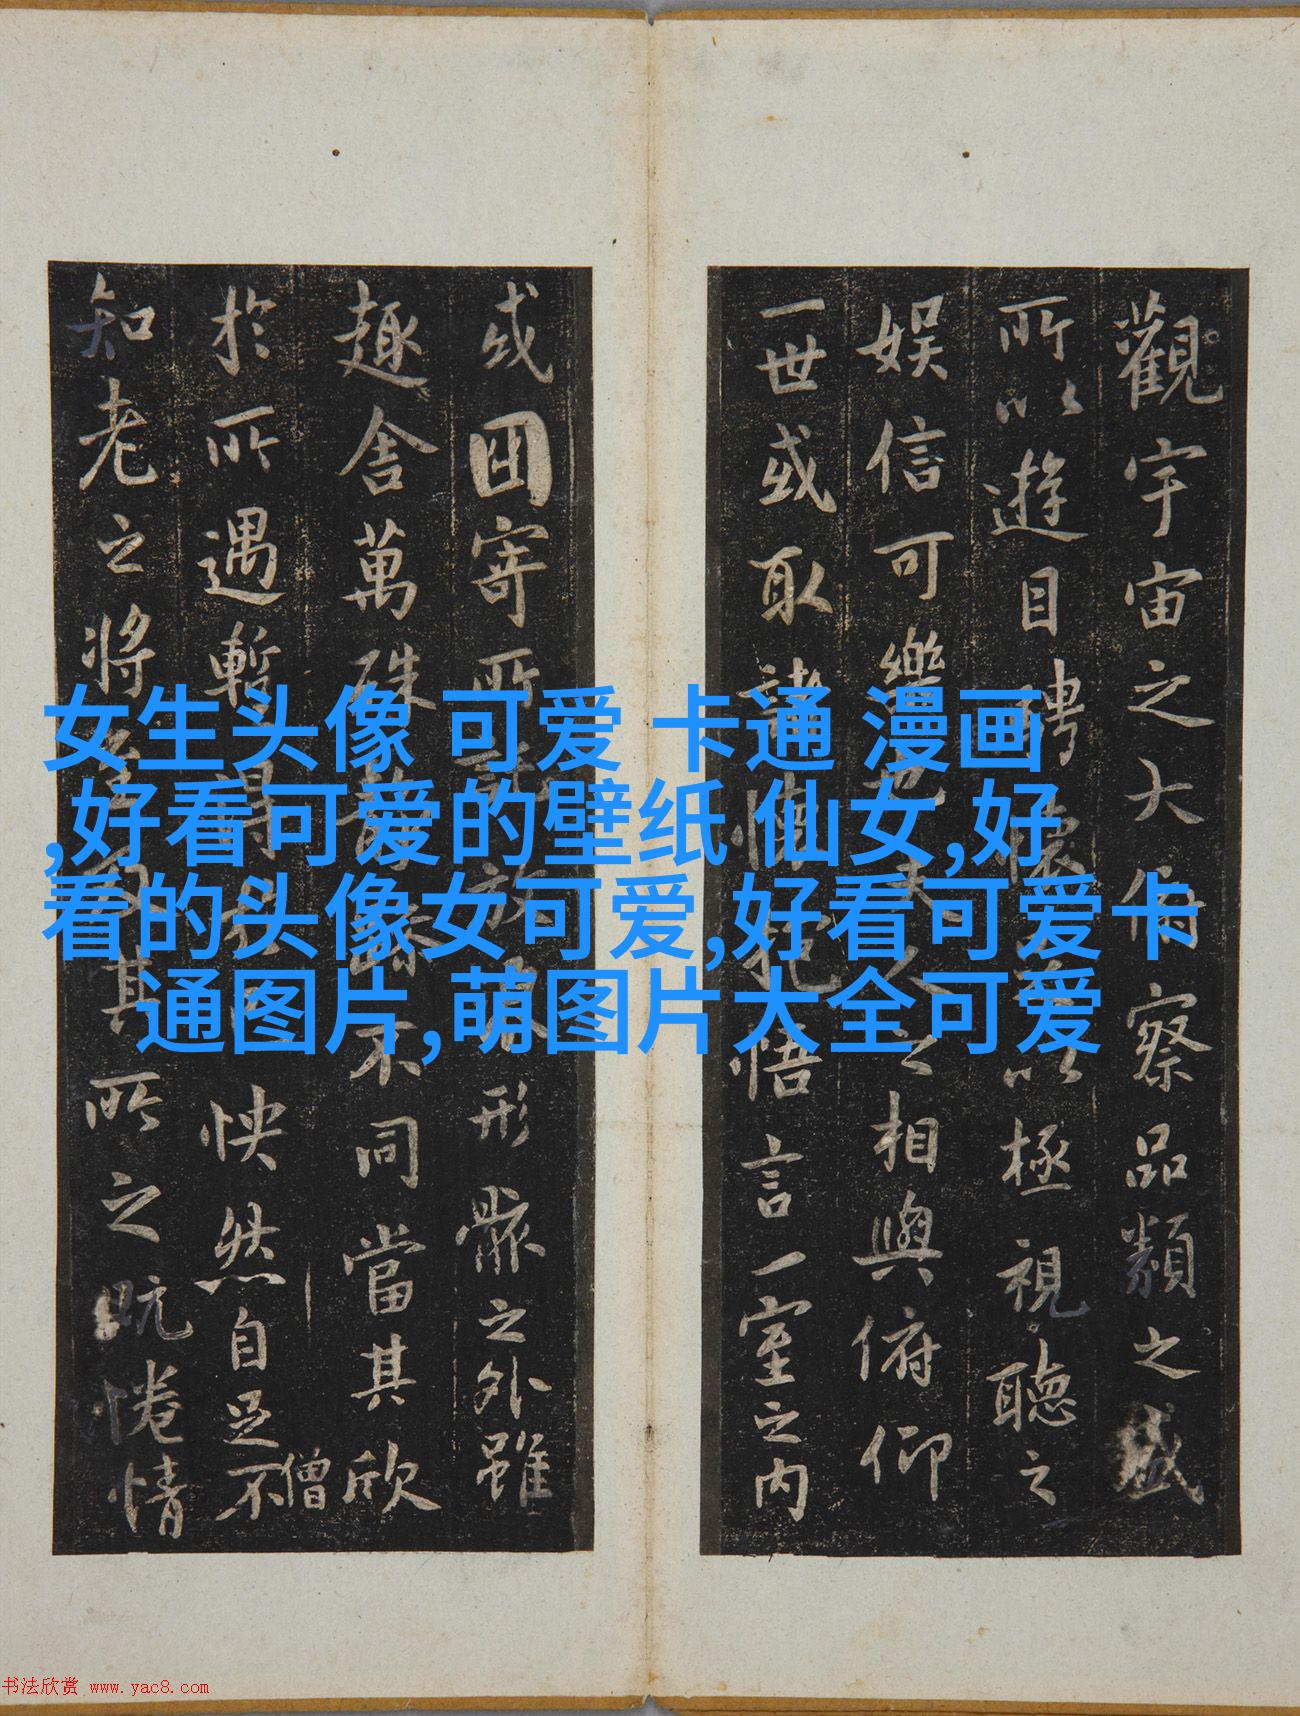 觀宇宙之大俯察品類之盛
所以遊目騁懷足以極視聽之
娛信可樂也夫人之相與俯仰
一世或取諸懷抱悟言一室之内
或因寄所託放浪形骸之外雖
趣舍萬殊靜躁不同當其欣
於所遇暫得於己怏然自足不
僧
知老之將至及其所之既惓情
女生头像 可爱 卡通 漫画
,好看可爱的壁纸 仙女,好
看的头像女可爱,好看可爱卡
通图片,萌图片大全可爱
书法欣赏 www.yac8.com